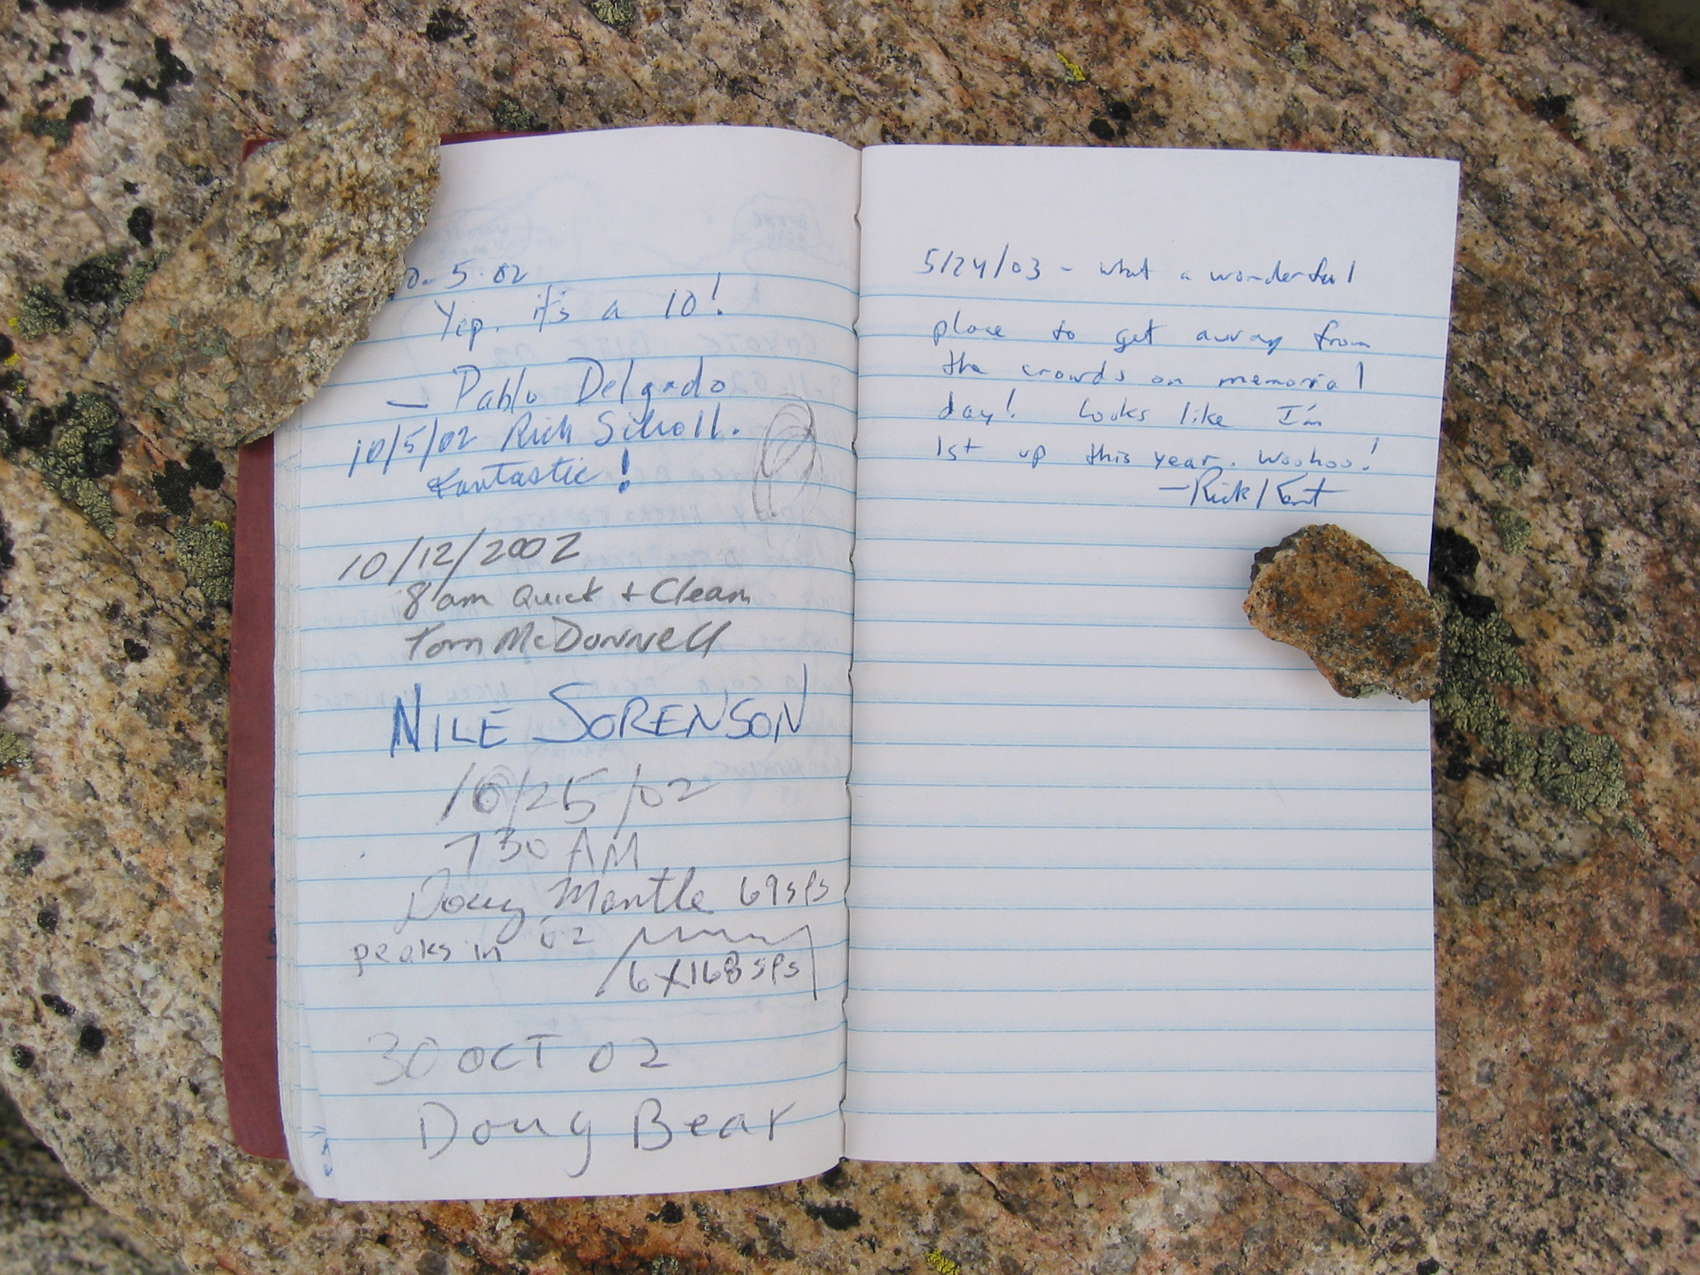 0. 5. 02
Yep. it's a 10!
— Pablo Delgado
10/5/02 Rich Scholl.
Fantastic!
10/12/2002
8am Quick + Clean
Tom McDonnell
NILE SORENSON
10/25/02
730 AM
Doug Mantle 69 SPS
peaks in '02
6X168 SPS
30 OCT 02
Doug Bear
5/24/03 - what a wonderful
place to get away from
the crowds on memorial
day! Looks like I'm
1st up this year. Woohoo!
-Rick Kent